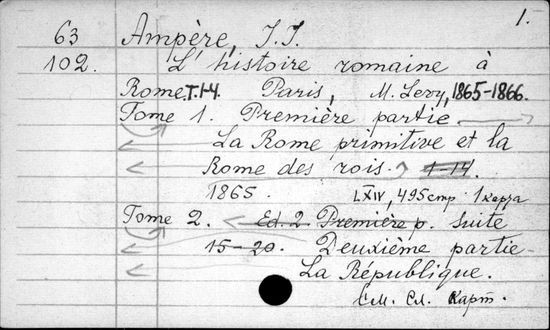 1.
63 Ampère, J.J.
102. L'histoire romaine à
Rome. T.1-4. Paris, M. Levy, 1865-1866.
Tome 1. Première partie
La Rome primitive et la
Rome des rois. 1-14.
1865. LXIV, 495 стр 1 карта
Tome 2. Ed. 2. Première p. suite
15-20. Deuxième partie
La République.
См. сл. карт.